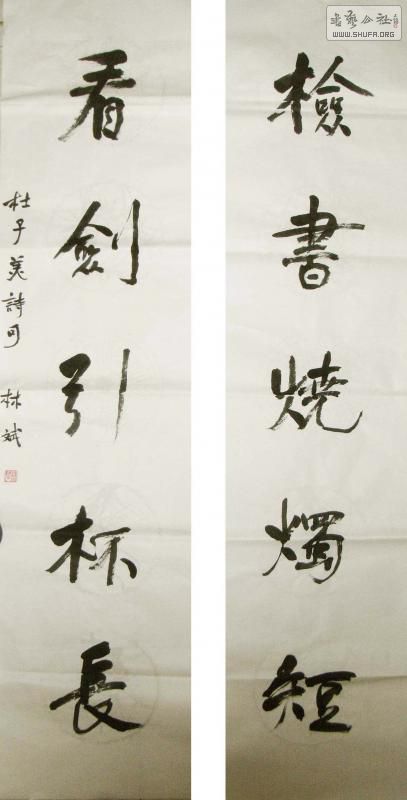 書藝公社
WWW.SHUFA.ORG
檢書燒燭短
看劍引杯長
杜子美詩句 林斌